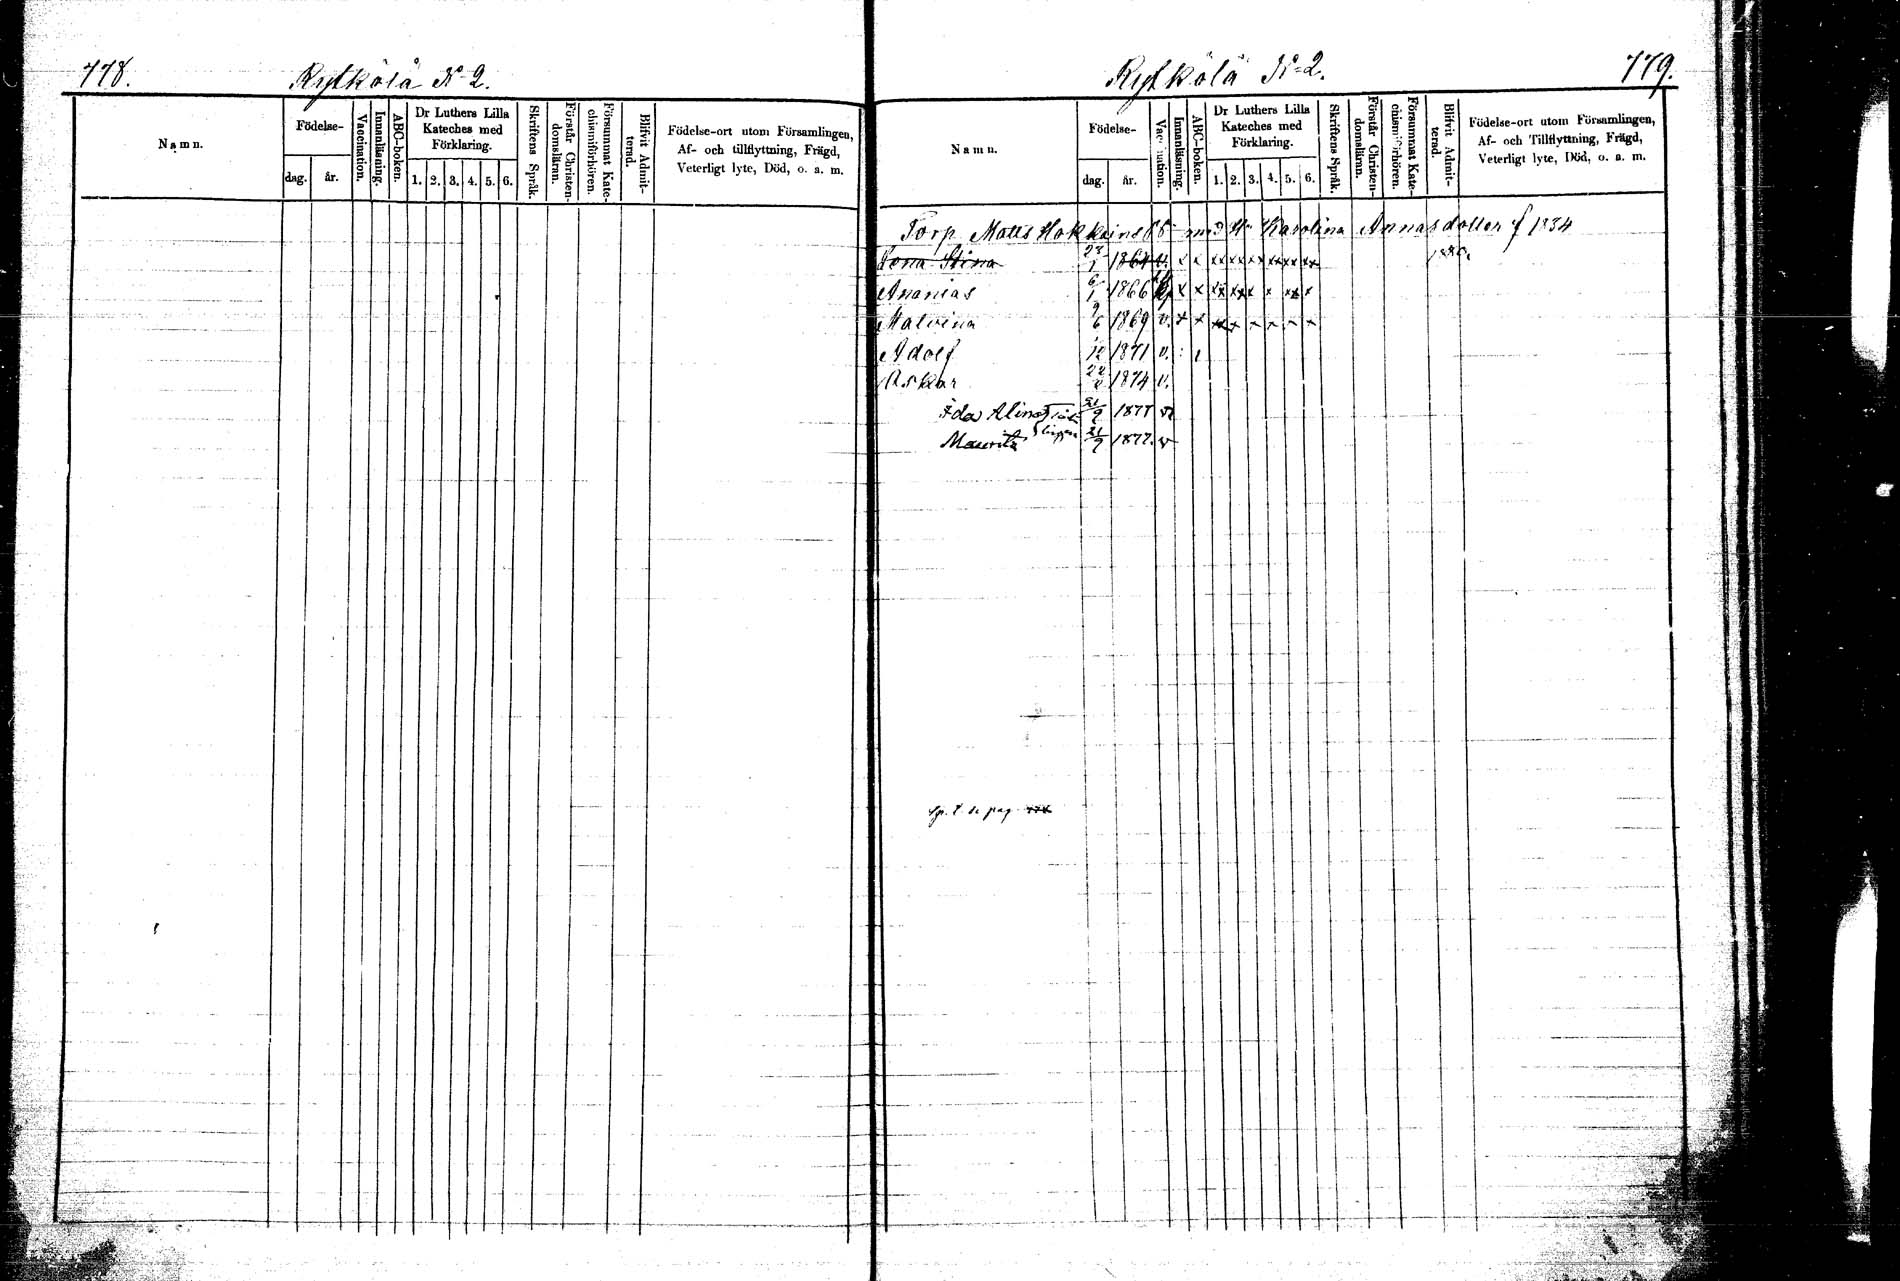 778. Rytkölä No 2.
Namn.
Födelse-
dag. år.
Vaccination.
Innanläsning.
ABC-boken.
Dr Luthers Lilla
Kateches med
Förklaring.
1. 2. 3. 4. 5. 6.
Skriftens Språk.
Förstår Christen-
domsläran.
Försummat Kate-
chismiförhören.
Blifvit Admit-
terad.
Födelse-ort utom Församlingen,
Af- och tillflyttning, Frägd,
Veterligt lyte, Död, o. a. m.
Rytkölä No 2. 779.
Namn.
Födelse-
dag. år.
Vaccination.
Innanläsning.
ABC-boken.
Dr Luthers Lilla
Kateches med
Förklaring.
1. 2. 3. 4. 5. 6.
Skriftens Språk.
Förstår Christen-
domsläran.
Försummat Kate-
chismiförhören.
Blifvit Admit-
terad.
Födelse-ort utom Församlingen,
Af- och Tillflyttning, Frägd,
Veterligt lyte, Död, o. a. m.
Torp. Matts med Karolina Annasdotter f 1834
Stina 1864 v. x x xx xx xx xx xx xx 1880.
Ananias 6/1 1866 x x xx xx x x xx x
Malvina 9/6 1869 v. x x xx x x x x x
Adolf 12 1871 v.
Oskar 22 1874 v.
Ida Alina 21/9 1877 v
Mauritz 21/9 1877. v
pag.